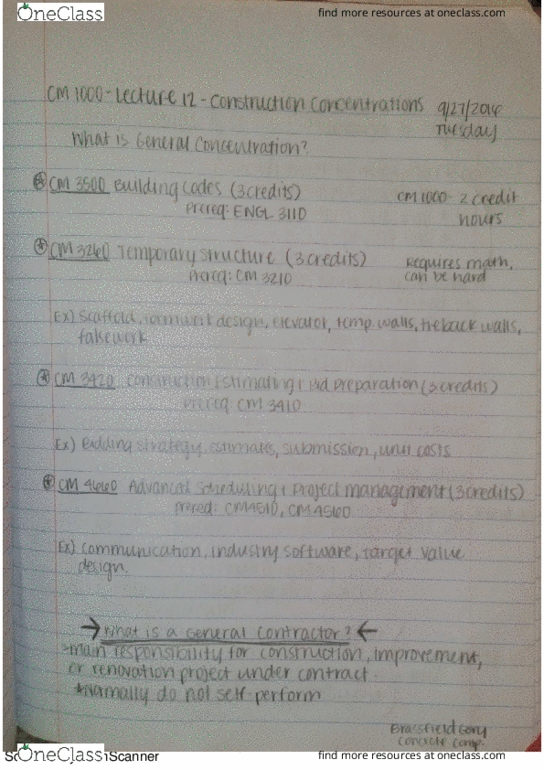 OneClass
find more resources at oneclass.com
CM 1000 - Lecture 12 - Construction Concentrations 9/27/2016
Tuesday
What is General Concentration?
CM 3500 Building Codes (3 credits) CM 1000 - 2 credit
Prereq: ENGL 3110 hours
CM 3260 Temporary Structure (3 credits) Requires math,
Prereq: CM 3210 can be hard
Ex) Scaffold, formwork design, elevator, temp. walls, tieback walls,
falsework
CM 3420 Construction Estimating + Bid Preparation (3 credits)
Prereq: CM 3410
Ex) Bidding strategy, estimates, submission, unit costs
CM 4660 Advanced Scheduling + Project management (3 credits)
Prereq: CM4510, CM4560
Ex) Communication, industry software, target value
design.
→ What is a General Contractor? ←
main responsibility for construction, improvement,
or renovation project under contract.
*Normally do not self-perform
Brassfield Gorry
Concrete Comp.
OneClass
Scanner
find more resources at oneclass.com